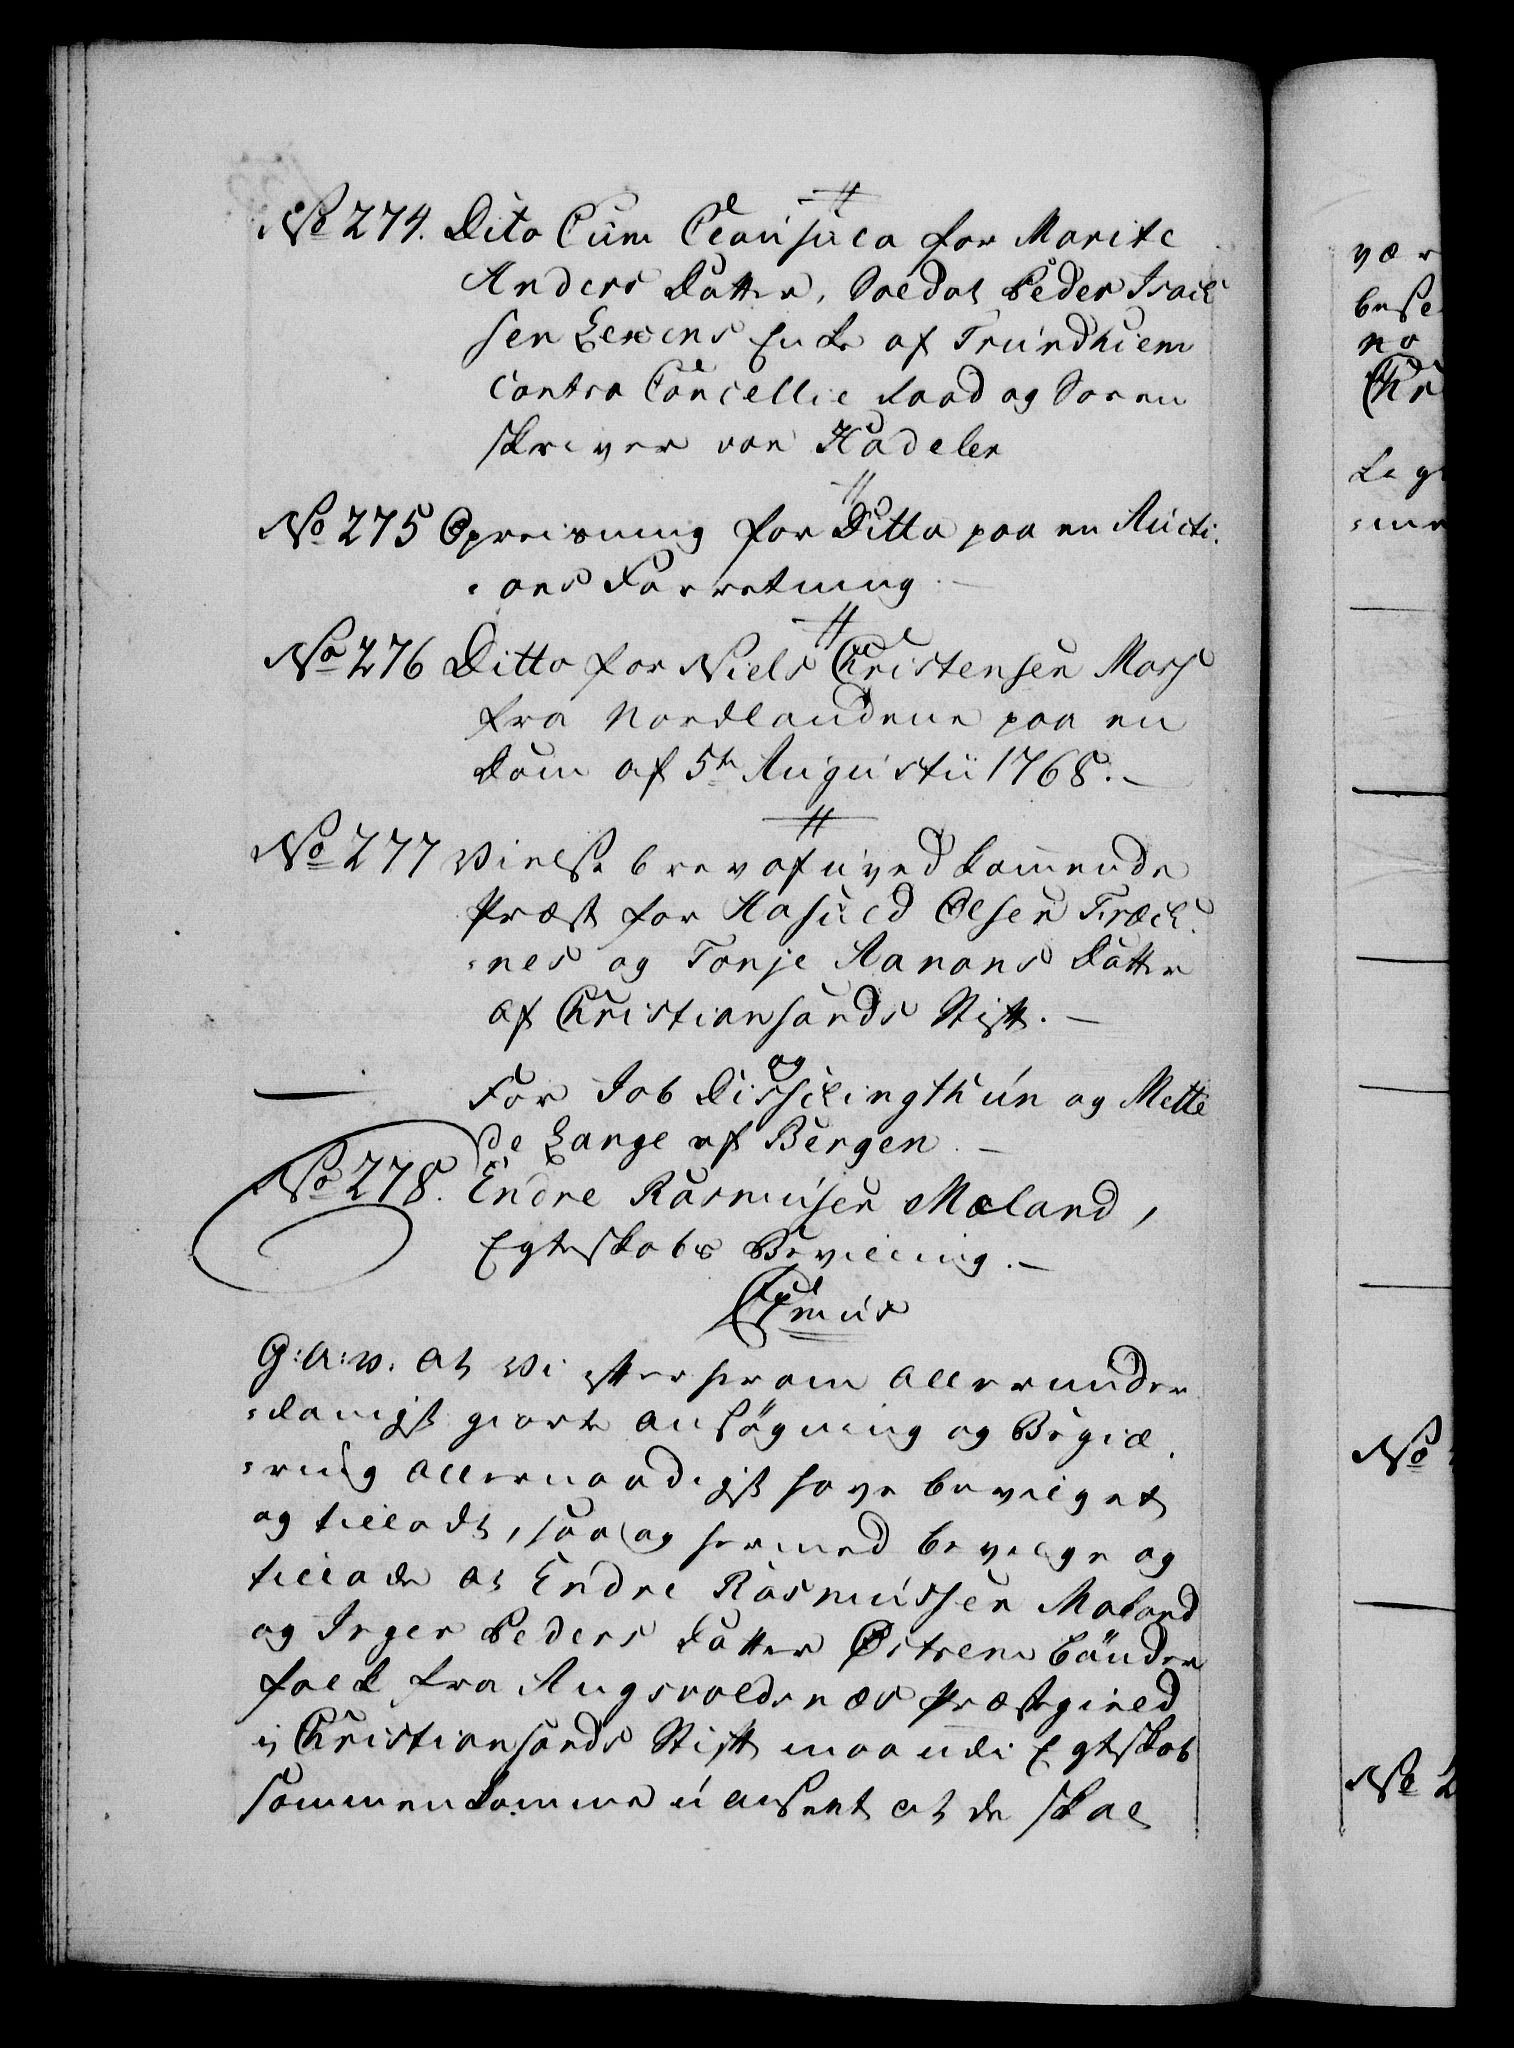 No 274. Dito Cum Clausula for Marite
Anders Datter, Soldat Peder Isach
sen Lexens Enke af Trundhiem
Contra Cancellie Raad og Soren
skriver von Hadelen
No 275 Opreisning for Ditto paa en Aucti¬
¬ons Forretning.
No 276 Ditto for Niels Christensen Mors
fra Nordlandene paa en
Dom af 5te Augusti 1768.
No 277 Vielse brev af uvedkommende
Præst for Aasuld Olsen Træck¬
¬nes og Tonje Aanons Datter
af Christiansands Stift.
For Job Dischingthun og Mette
de Lange af Bergen.
No 278. Endre Rasmusen Mæland,
Egteskabs Bevilling.
Cpmus
G: A: V. At Vi efter herom allerunder
¬danigst giorte Ansögning og Begiæ¬
¬ring allernaadigst have bevilget
og tilladt, saa og hermed bevilge og
tillade at Endre Rasmussen Maland
og Inger Peders Datter Østrem bönder
folk fra Augsvoldsnæs Præstegield
ij Christiansands Stift maa udi Egteskab
sammenkomme uanseet at de skal
være
besl
no
Chr
Lag
No
No 2